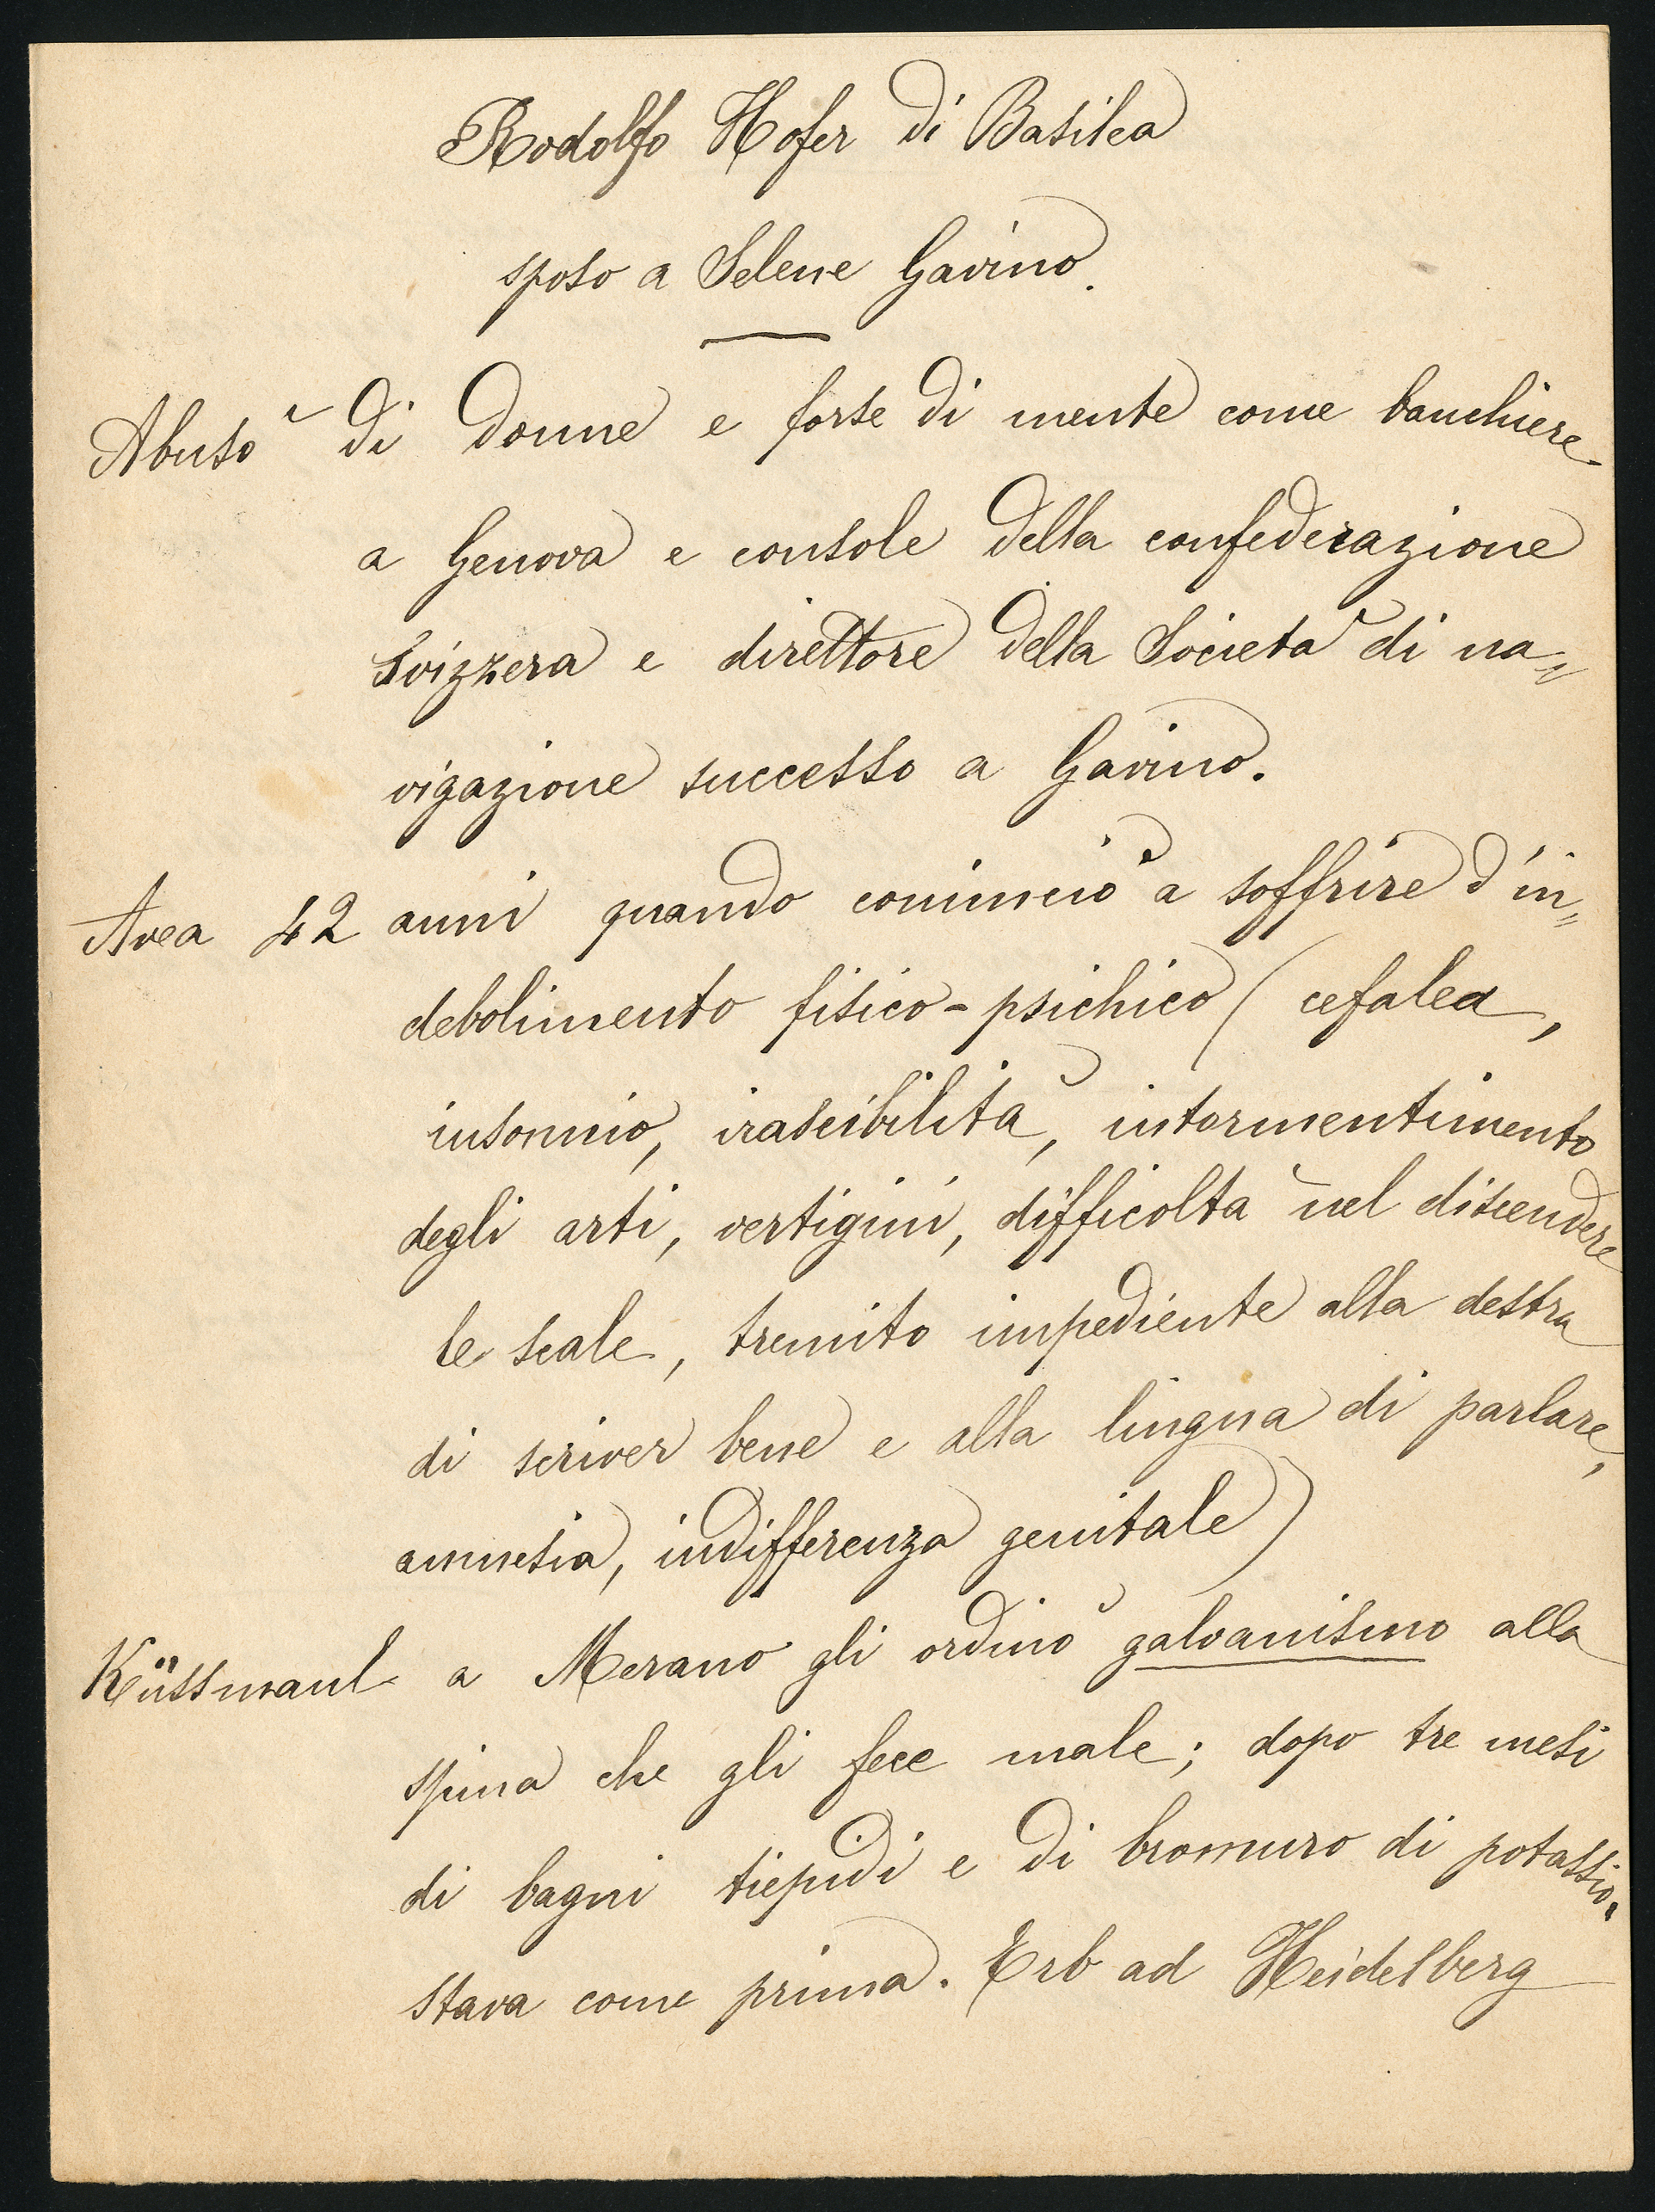 Rodolfo Hofer di Basilea
sposo a Selene Gavino.
Abusò di donne e forse di mente come banchiere
a Genova e console della confederazione
svizzera e direttore della Società di na=
vigazione successo a Gavino.
Avea 42 anni quando cominciò a soffrire d'in=
debolimento fisico-psichico (cefalea,
insonnio, irascibilità, intormentimento
degli arti, vertigini, difficoltà nel discendere
le scale, tremito impediente alla destra
di scriver bene e alla lingua di parlare,
amnesia, indifferenza genitale)
Küssmaul a Merano gli ordinò galvanismo alla
spina che gli fece male; dopo tre mesi
di bagni tiepidi e di bromuro di potassio.
stava come prima. Erb ad Heidelberg